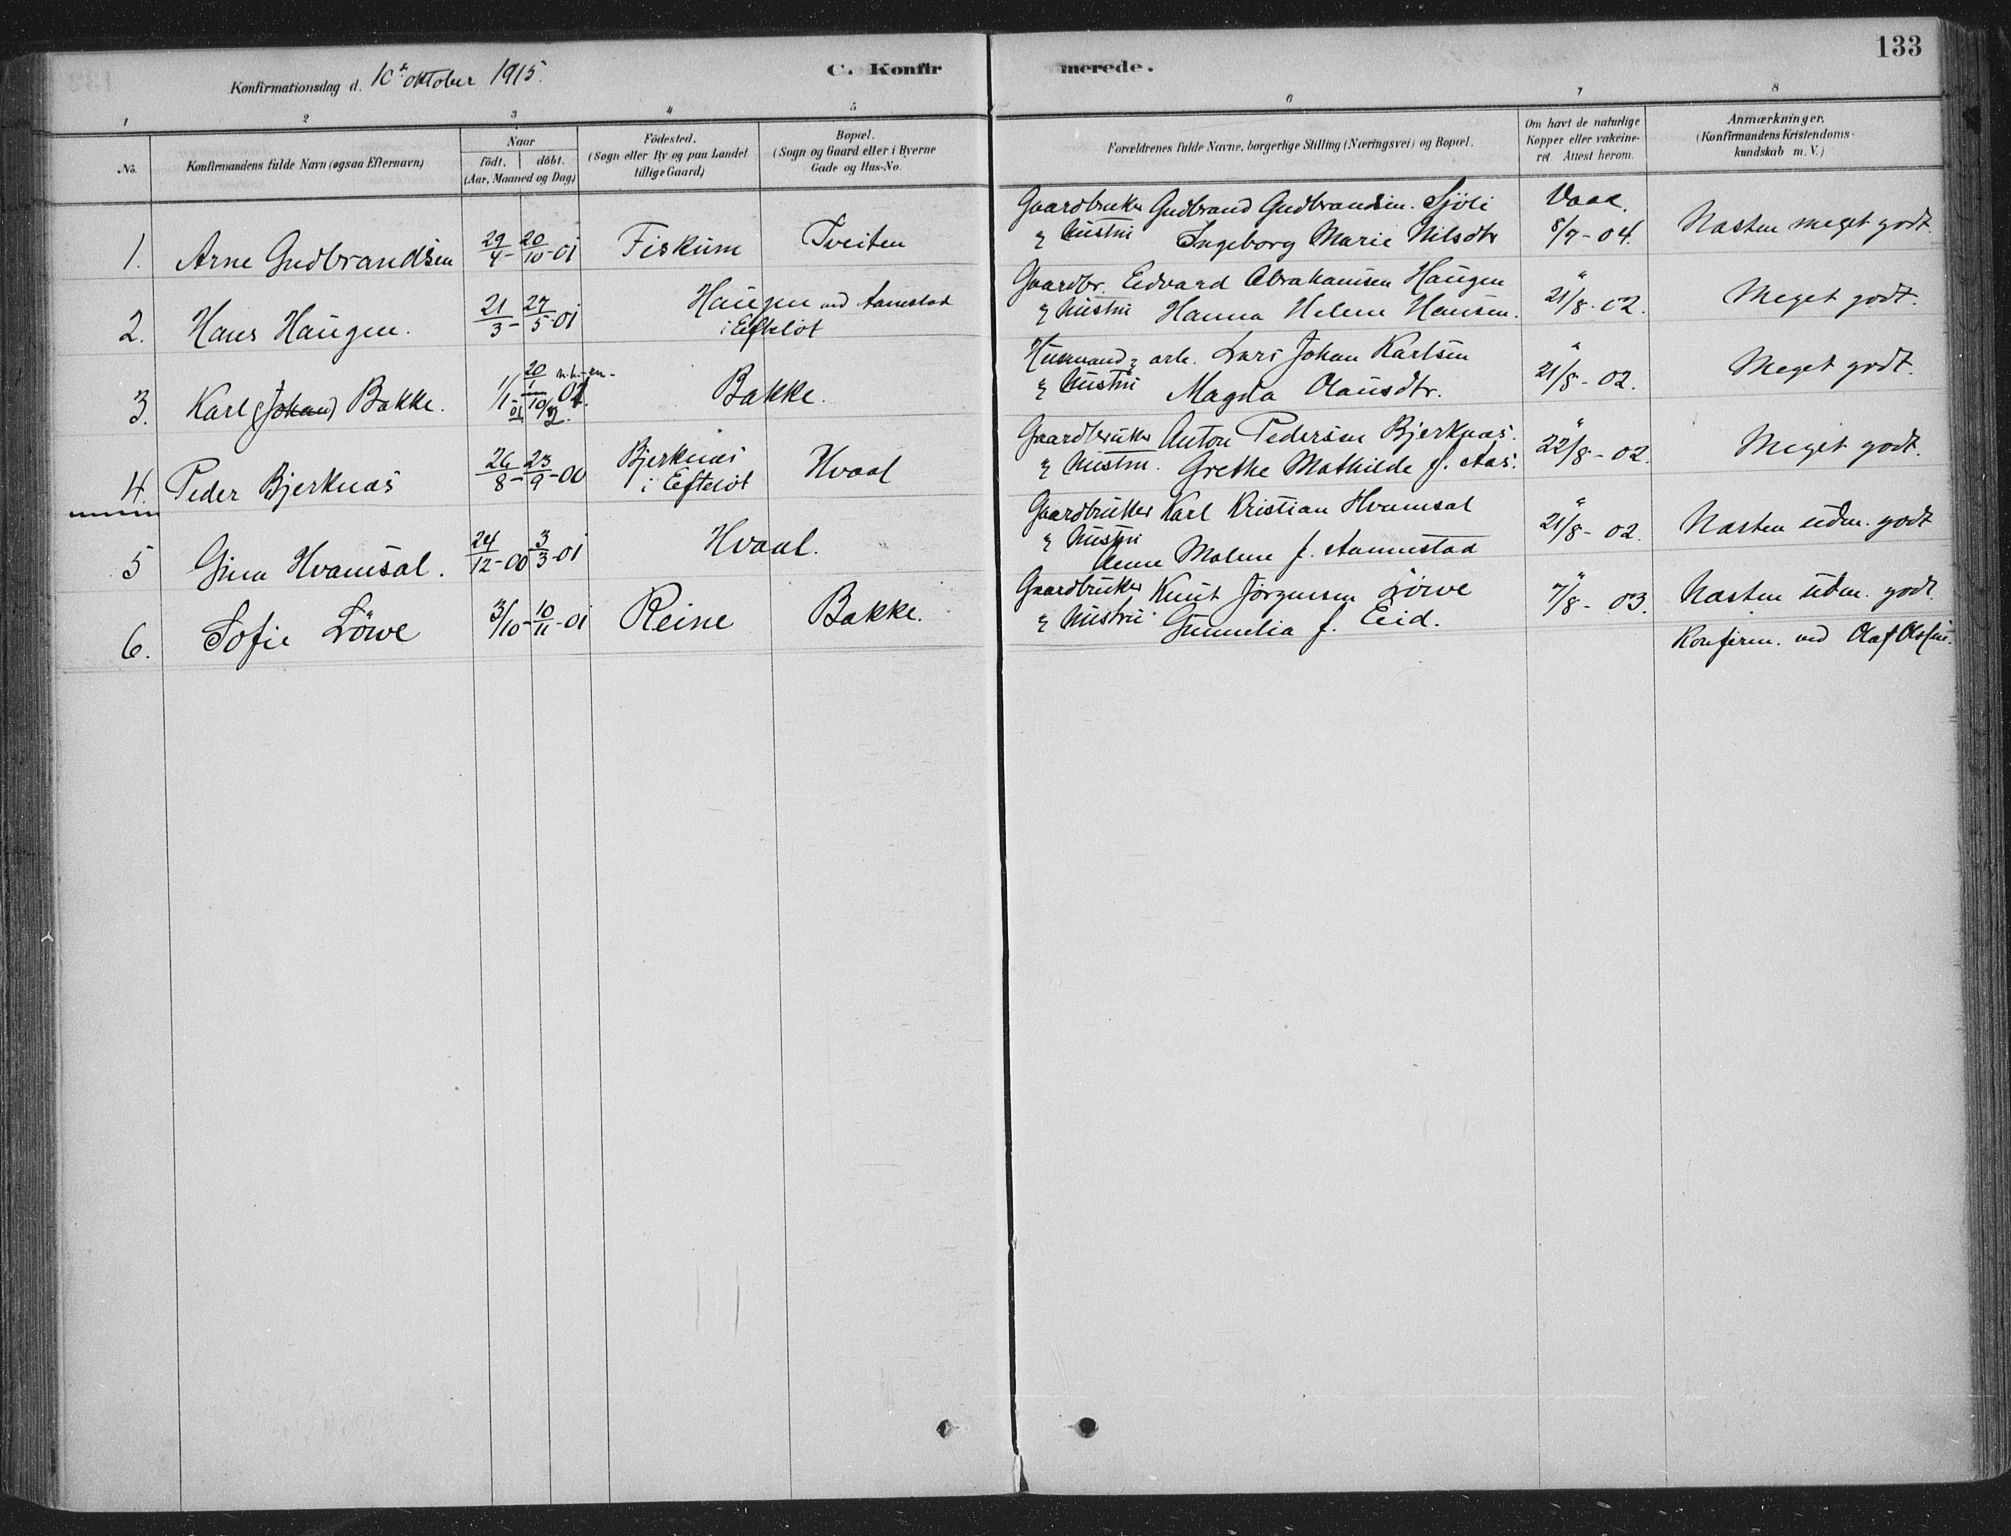 133
Konfirmationsdag d. 10de oktober 1915.
C. Konfirmerede.
1 2 3 4 5 6 7 8
No. Konfirmandens fulde Navn (ogsaa Efternavn) Naar født. døbt. (Aar, Maaned og Dag) Fødested. (Sogn eller By og paa Landet tillige Gaard) Bopæl. (Sogn og Gaard eller i Byerne Gade og Hus-No. Forældrenes fulde Navne, borgerlige Stilling (Næringsvei) og Bopæl. Om havt de naturlige Kopper eller vakcineret. Attest herom. Anmærkninger. (Konfirmandens Kristendomskundskab m. V.)
1. Arne Gudbrandsen 29/4 - 20/10 - 01 Fiskum Tveiten Gaardbruker Gudbrand Gudbrandsen Sjöli Vacc.
& hustru Ingeborg Marie Nilsdtr 8/7 - 04. Næsten meget godt.
2. Hans Haugen. 21/3 - 27/5 - 01 Haugen ved Aamstad Gaardbr. Edvard Abrahamsen Haugen "
i Efteløt & hustru Hanna Helene Hansen. 21/8 - 02. Meget godt.
3. Karl (Johan) Bakke. 1/1 - 01 20/10 02. Bakke. Husmand & arb. Lars Johan Karlsen "
& hustru Magda Olausdtr. 21/8 - 02. Meget godt.
4. Peder Bjerknæs 26/8 - 23/9 - 00 Bjerknæs i Efteløt Hvaal Gaardbruker Anton Pedersen Bjerknæs. "
& hustru. Grethe Mathilde f. Aas. 22/8 - 02. Meget godt.
5 Gina Hvamsal. 24/12 - 00 3/3 - 01 Hvaal. Gaardbruker Karl Kristian Hvamsal "
& hustru Anne Malene f. Aamestad 21/8 - 02. Næsten udm. godt
6. Sofie Löwe 3/10 - 10/11 - 01 Reine Bakke. Gaardbruker Knut Jörgensen Löwe "
& hustru Gunnelia f. Eid. 7/8 - 03. Næsten udm. godt.
Konfirm. ved Olaf Olsen.